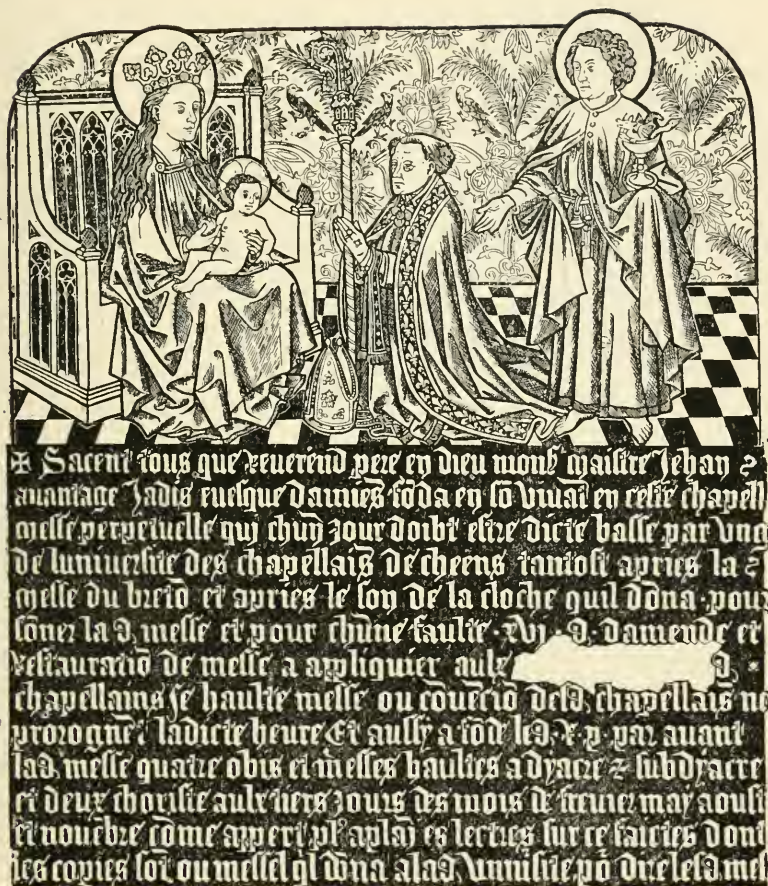 ✠ Sacent tous que reuerend pere en dieu monss maistre Jehan ⁊
auantage Jadis euesque damiēs fōda en sō viuāt en ceste chapell
messe perpetuelle qui chūn jour doibt estre dicte basse par vng
de luniuersite des chapellais de cheens tantost apries la ⁊
messe du bretō et apries le son de la cloche quil dōna pour
sōner lad. messe et pour chūne faulte · xvj · d. damende et
restauratiō de messe a appliquier aulx d.
chapellains se haulte messe ou cōuētiō desd. chapellais ne
prorogne ladicte heure Et aussy a fōde led. par auant
lad. messe quatre obis et messes haultes a dyacre ⁊ subdyacre
et deux choriste aulx tiers jours des mois de feurier may aoust
et nouēbre cōme appert aplaī es lectres sur ce faictes dont
les copies sōt ou messel ql dōna alad. vniuersite po dire lesd. mes